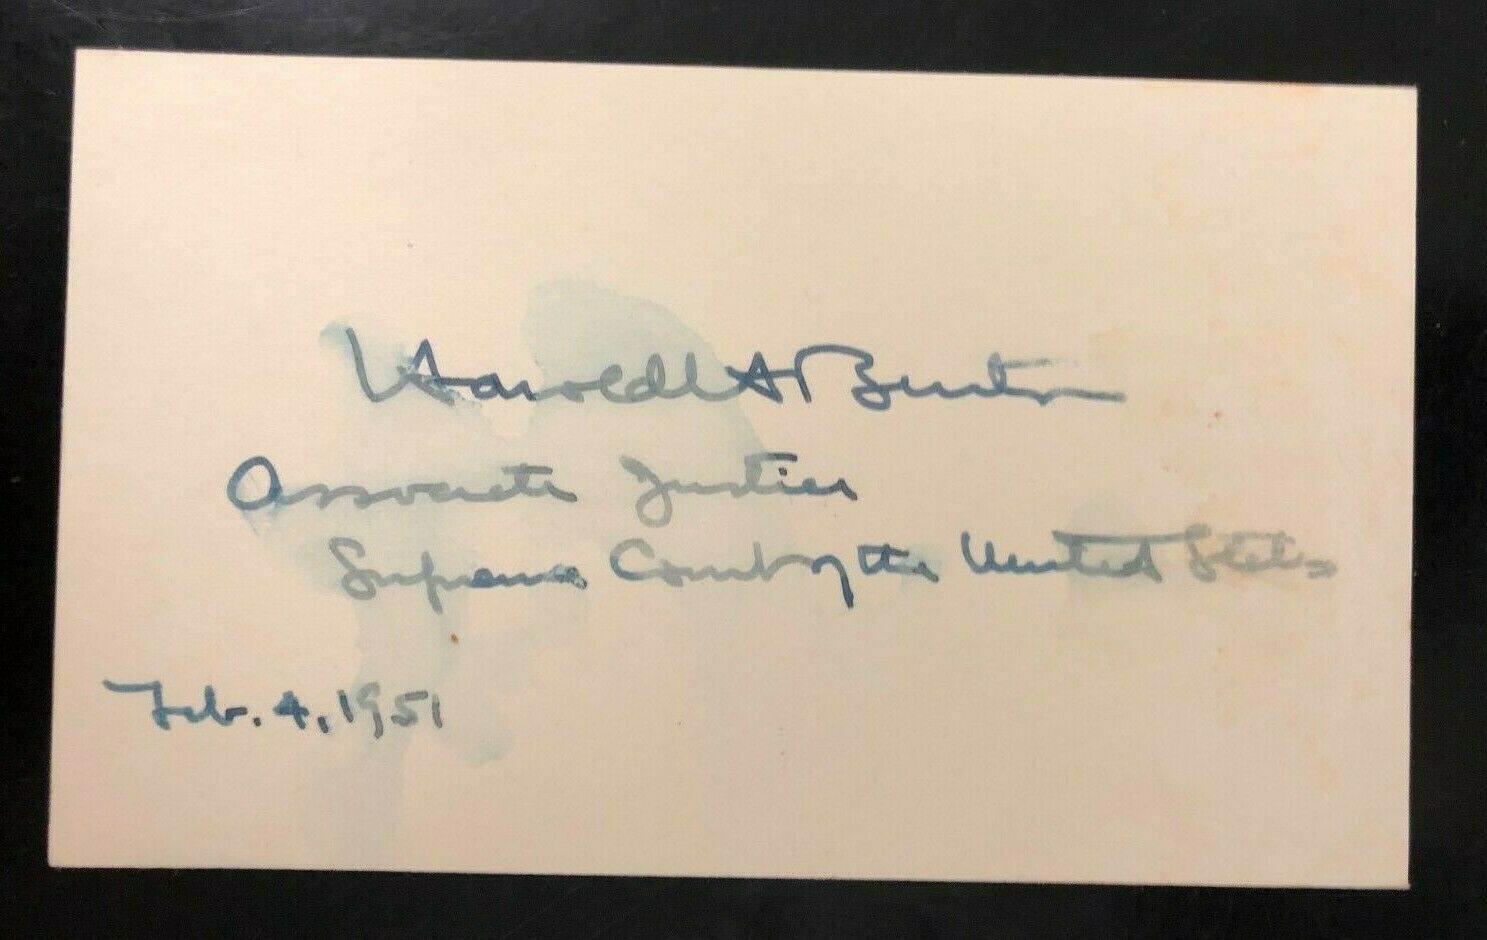 Harold H Burton
Associate Justice
Supreme Court of the United States
Feb. 4, 1951